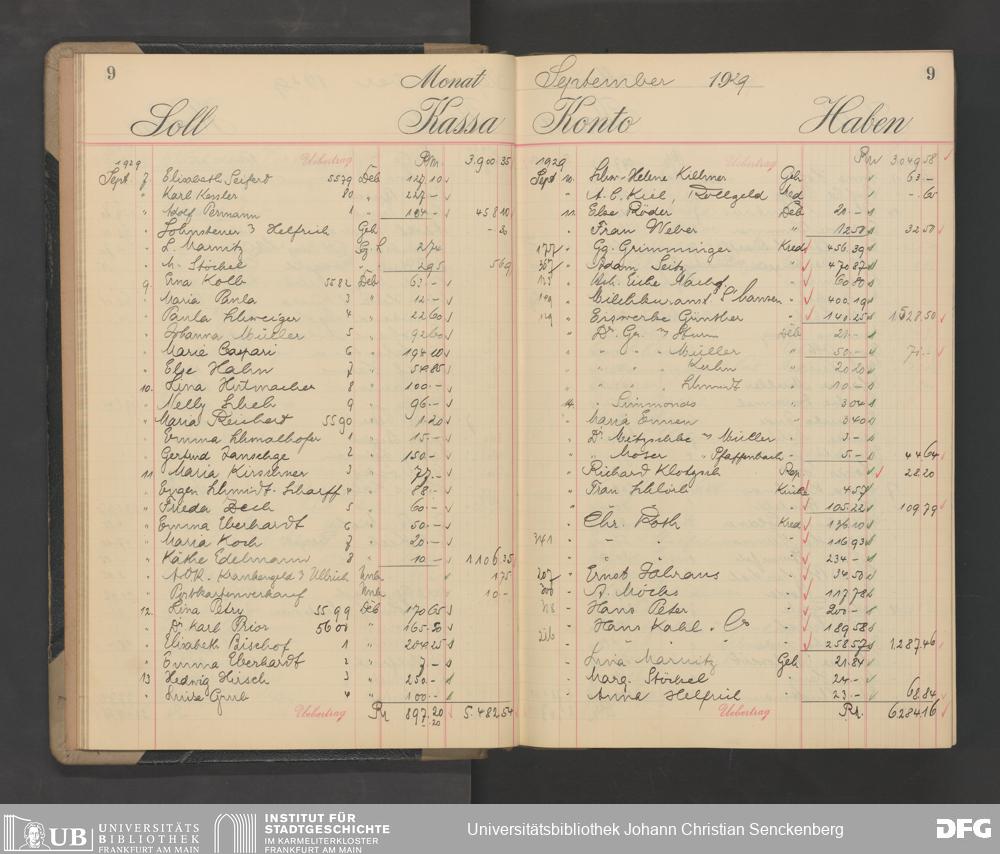 9
Monat
Soll
Kassa
Uebertrag Rm. 3.900 35
1929
Sept. 7. Elisabeth Seifert 5579 Deb 127.10
" Karl Kessler 80 " 227.-
" Adolf Permann 1 " 104.- 458 10
" Helfrich Geb
" L. Marnitz 274
" M. Stöckel 295 569
9. Erna Kolb 5582 Deb 63.-
" Maria Paula 3 " 12.-
" Paula Schweiger 4 " 22 60
" Johanna Müller 5 " 92 60
" Marie Caspari 6 " 194 10
" Else Hahn 7 " 54 85
10. Lina Hutmacher 8 " 100.-
" Nelly 9 " 96.-
" Maria Reichert 5590 " 1 20
" Emma Schmalhofer 1 " 15.-
" Gertrud 2 " 150.-
11. Maria Kirschner 3 " 77.-
" Eugen Schmidt-Scharff 4 " 88.-
" Frieda 5 " 60.-
" Emma Eberhardt 6 " 50.-
" Maria Koch 7 " 20.-
" Käthe Edelmann 8 " 10.- 1 106.35
" Krankengeld Ullrich Unk 1 75
" Postkartenverkauf Unk 10.-
12. Lina Petry 5599 Deb 170 65
" Dr. Karl Prior 5600 " 165.50
" Elisabeth Bischof 1 " 204 25
" Emma Eberhardt 2 " 7.-
13 Hedwig Hirsch 3 " 250.-
" Luise Grub 4 " 100.-
Uebertrag Rm 897.20 5.482.54
20
September 1929
9
Konto
Haben
1929 Uebertrag Rm 3049 58
Sept 10. Schw. Helene Kellner Geb 63.-
" A. E. Kiel, Rollgeld Kred -.60
11. Else Röder Deb 20.-
" Frau Weber " 12 50 32 50
177 " Gg. Grimminger Kred 456.39
367 " Adam Seitz " 470 87
133 " Nachf. " 60 80
" " 400.19
119 " Günther " 140.25 1528.50
" Dr. Gr. Deb 21.-
" " " " Müller " 50.- 71.-
" " " " 20 20
" " " " Schmidt 10.-
14. " Simmonds " 3 04
" Maria Emmen " 5 40
" Dr. Müller " 3.-
" " Moser " Pfaffenbach " 5.- 44 64
" Richard Klotzsch Rep. 28.20
" Frau Küche 4 57
" " " 105.22 109.79
" Chr. Roth Kred 136 10
341 " " " 116 93
" " " 234.-
207 " Ernst " 34.50
300 " A. Möchs " 117.78
318 " Hans Peter " 200.-
" Hans Kahl. Co " 189 58
226 " " " 258 57 1.287.46
" Lina Marnitz Geb 21.84
" Marg. Stöckel " 24.-
" Anna Helfrich " 23.- 68.84
Uebertrag Rm. 6284 16
UB UNIVERSITÄTS
BIBLIOTHEK
FRANKFURT AM MAIN
INSTITUT FÜR
STADTGESCHICHTE
IM KARMELITERKLOSTER
FRANKFURT AM MAIN
Universitätsbibliothek Johann Christian Senckenberg
DFG